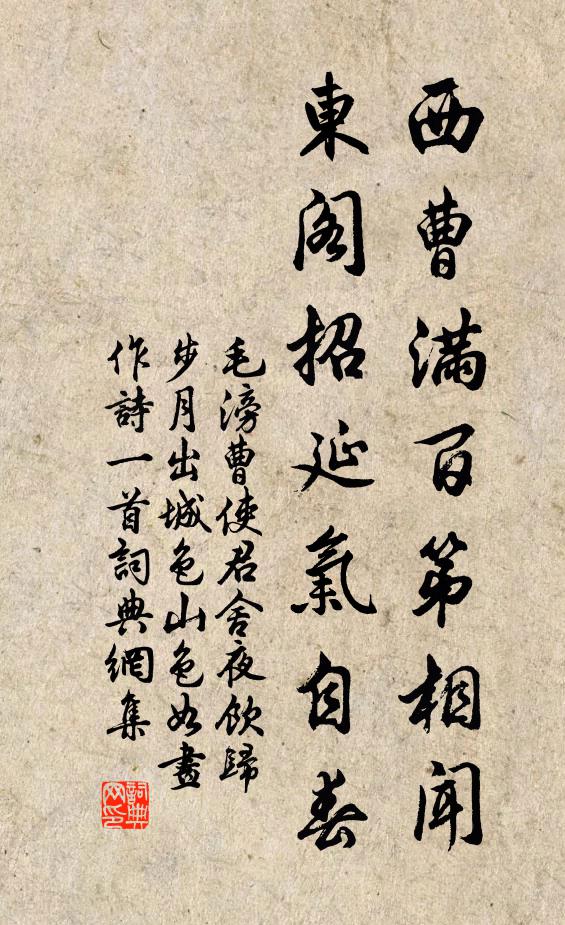 西曹滿百第相聞
東閣招延氣自春
毛滂曹使君舍夜飲歸
步月出城色山色如畫
作詩一首詞典網集
詞典
网印